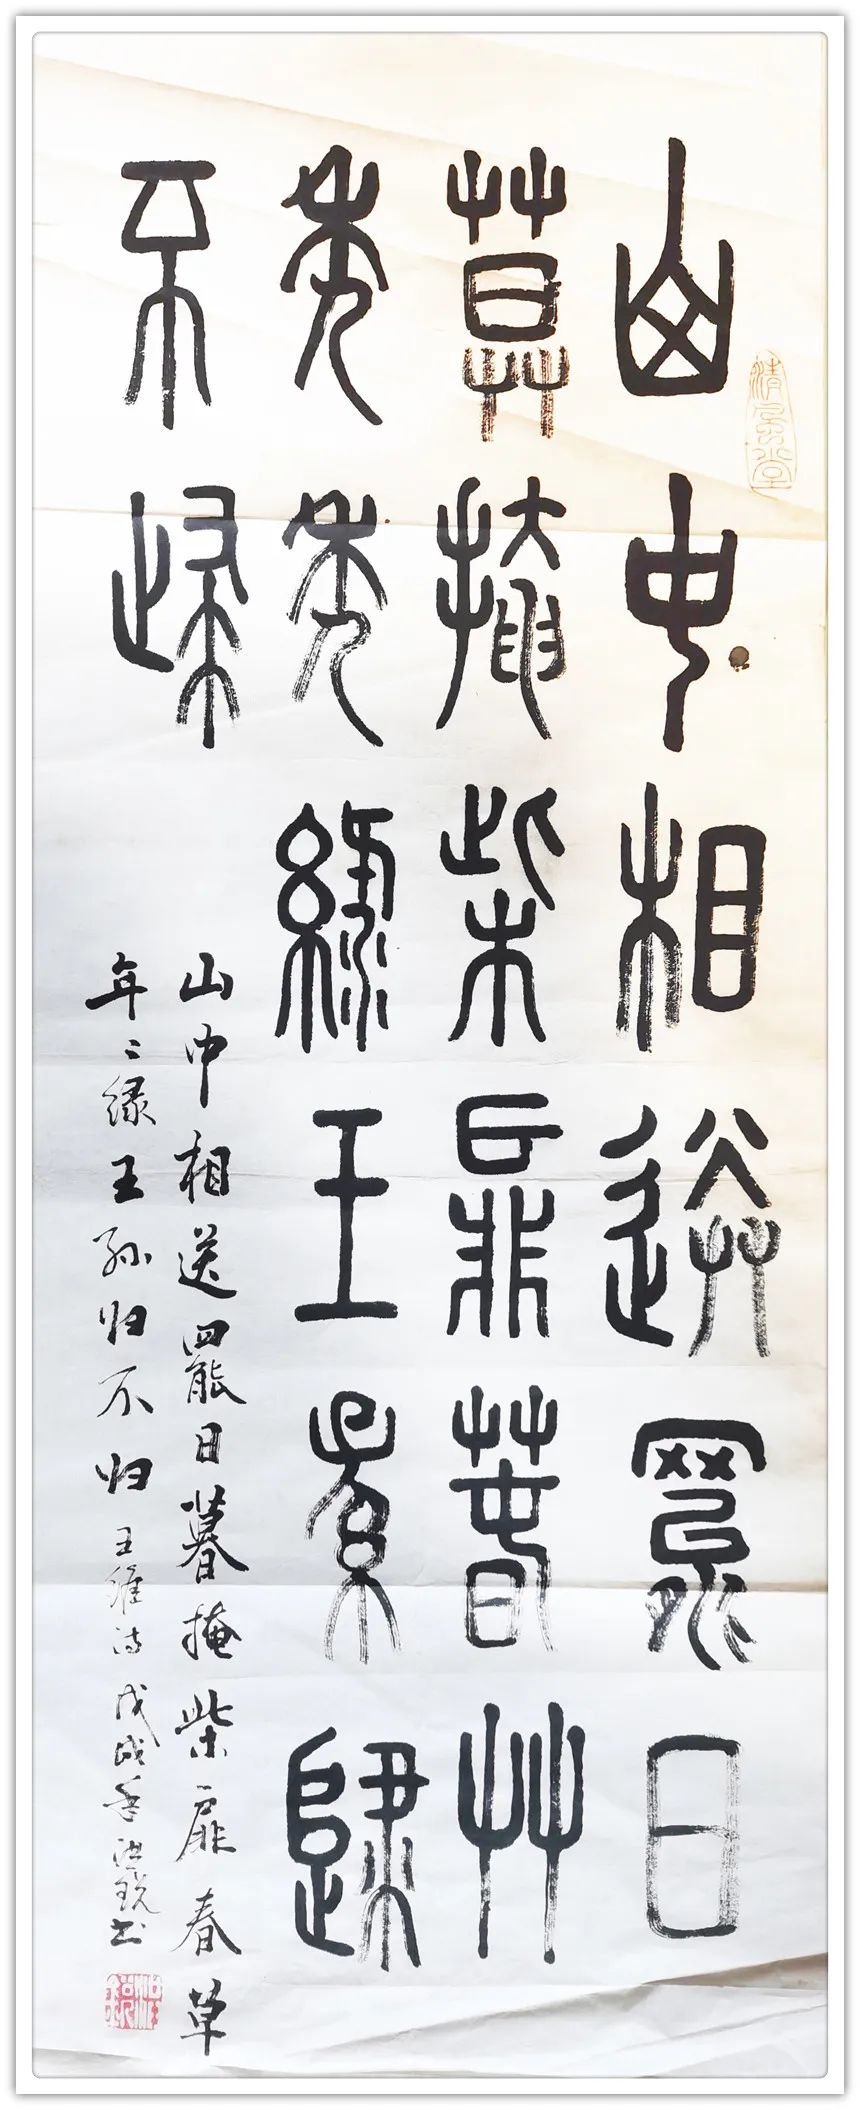 山中相送罷日
莫掩柴扉春艸
年年綠王孫歸
不歸
山中相送罢日暮掩柴扉春草
年〻绿王孙归不归 王维诗 戊戌年 洪锐书
清風堂